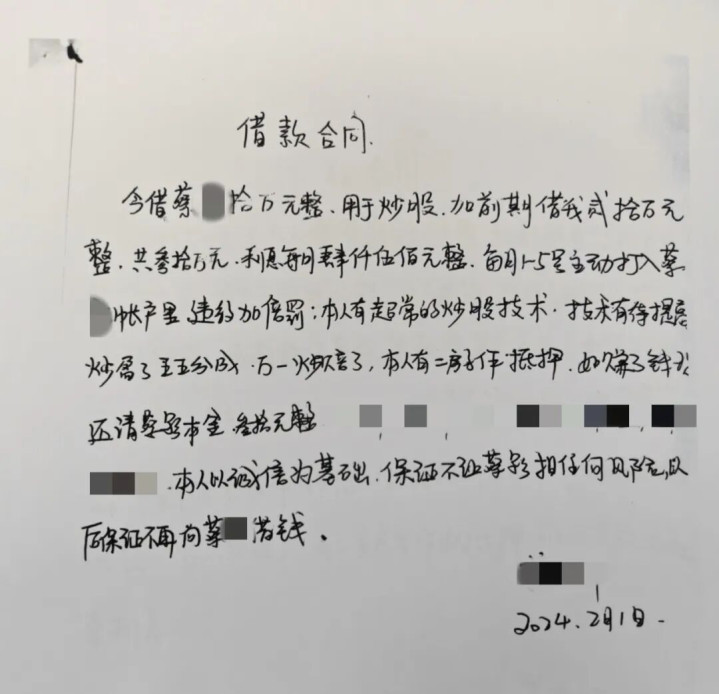 借款合同.
今借蔡 拾万元整、用于炒股、加前期借我贰拾万元
整、共叁拾万元、利息每月肆仟伍佰元整、每月1-5号主动打入蔡
帐户里 违约加倍罚；本人有超常的炒股技术.技术有待提高
炒富了五五分成.万一炒赔了，本人有二房子作抵押.如赚了钱
还清蔡 本金.叁拾元整
.本人以诚信为基础.保证不让蔡 担任何风险,以
后保证不再向蔡 借钱。
2024.2月1日.